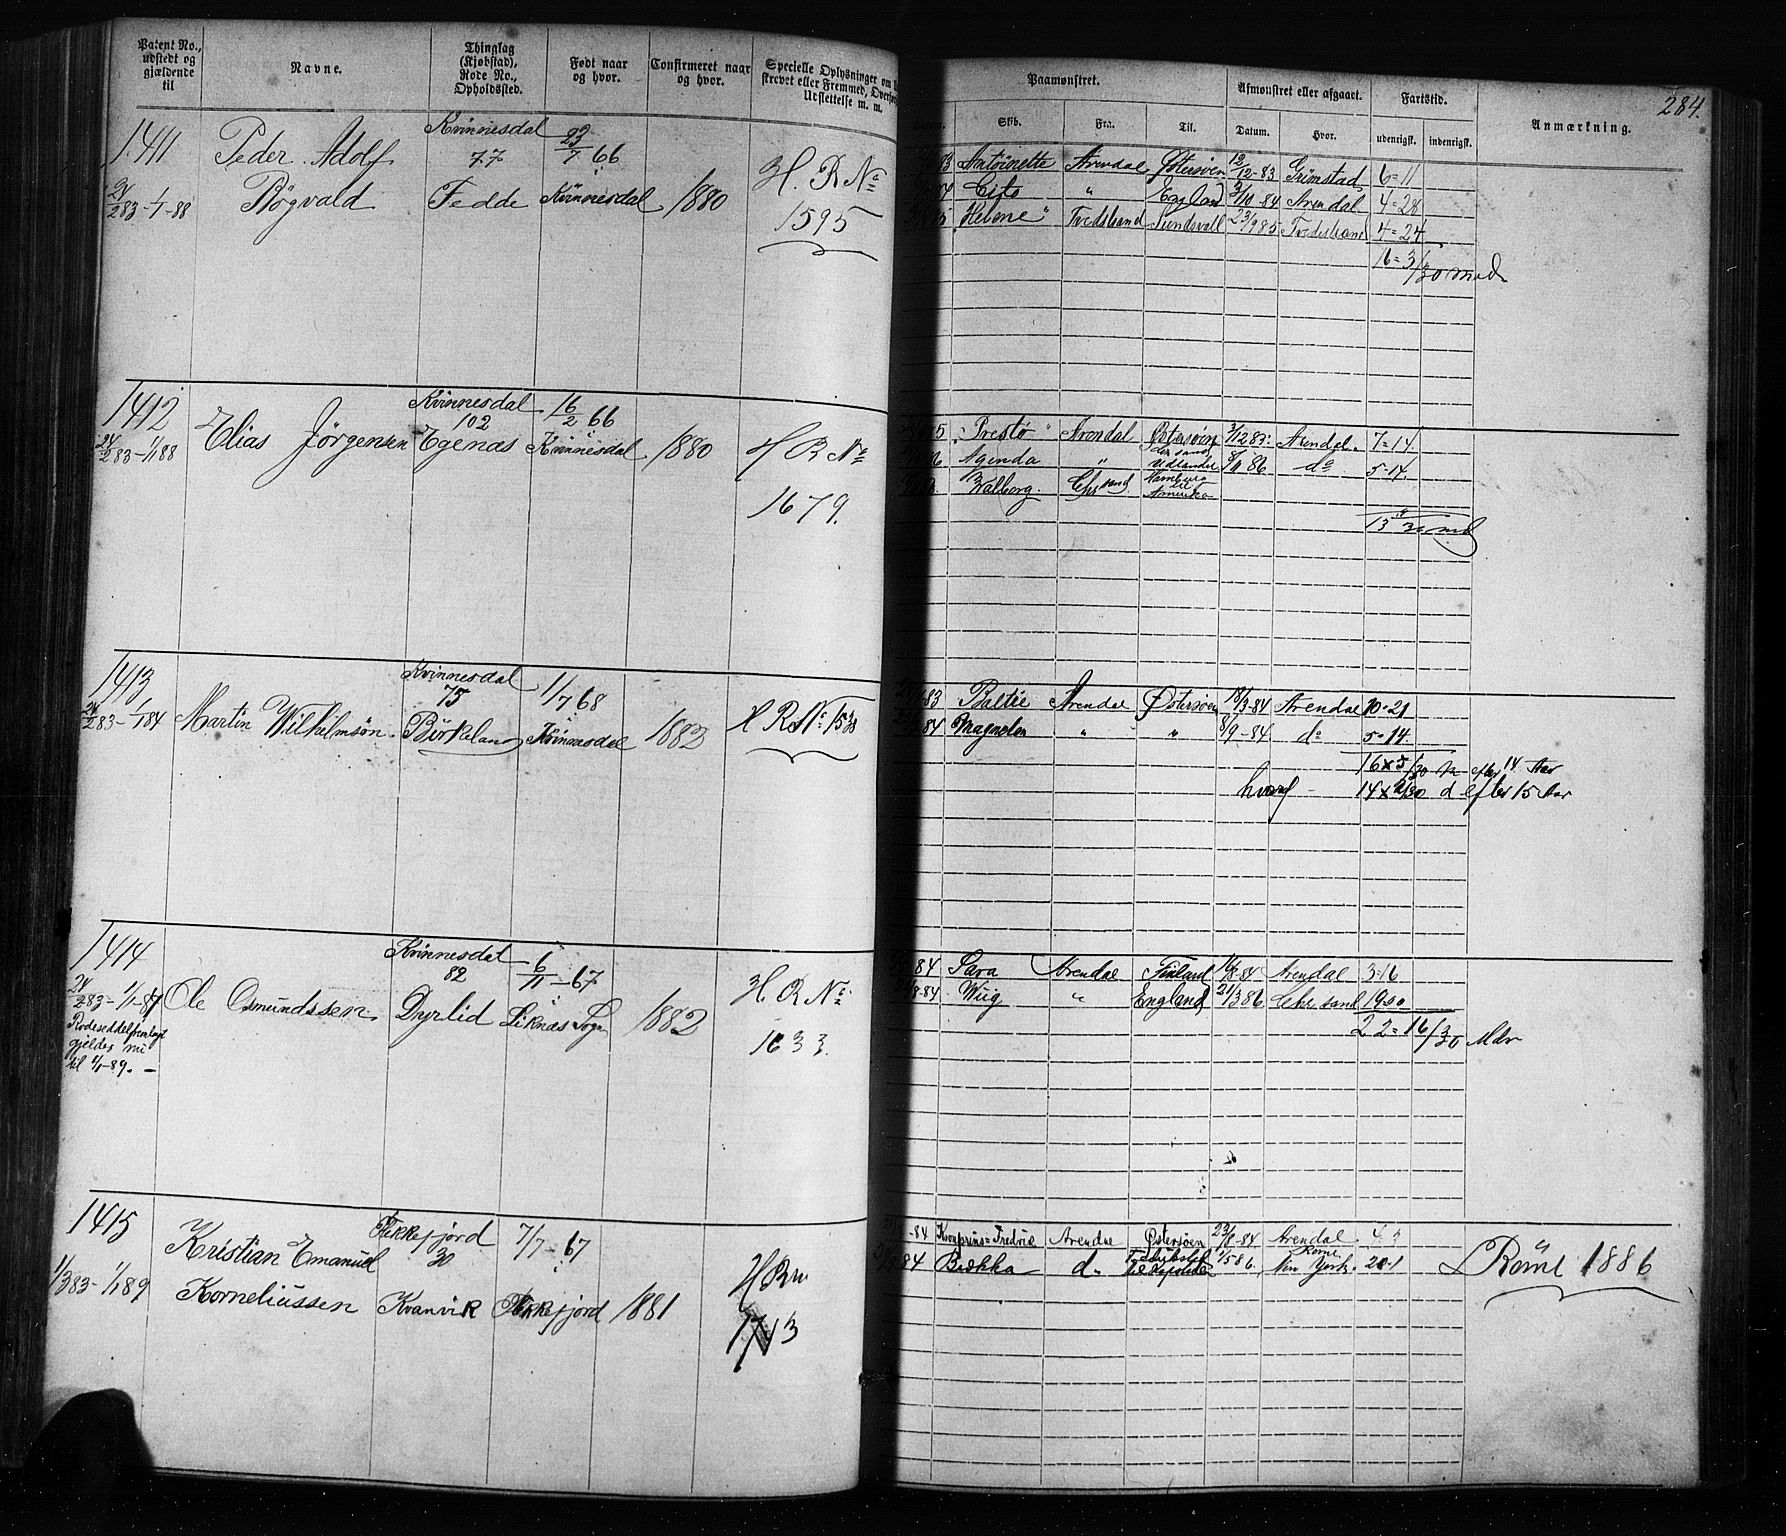 Patent No., udstedt og gjældende til
Navne.
Thinglag (Kjøbstad), Rode No., Opholdssted.
Født naar og hvor.
Confirmeret naar og hvor.
Specielle Oplysninger om
skrevet eller Fremmed, Overført
Udslettelse m. m.
Paamønstret.
Skib.
Fra.
Til.
Afmønstret eller afgaaet.
Datum.
Hvor.
Fartstid.
udenrigsk.
indenrigsk.
Anmærkning.
284.
1411
24/2 83 - 1/1 - 88
Peder Adolf
Bøgvald
Kvinnesdal
77
Fedde
23/7 66
Kvinnesdal
1880
H. R No
1595
Antoinette Arendal Østersøen 12/12-83 Grimstad 6=11
" England 3/10-84 Arendal 4=28
Helene" Tvedestrand Sundsvall 23/9 85 4=24
16=3/30 md
1412
24/2 83 - 1/1 88
Elias Jörgensen
Kvinnesdal
102
Egenæs
16/2 66
Kvinnesdal
1880
H R No
1679.
"Prestø" Arendal Østersøen Arendal. 7=14
Agenda " Udlandet 86 do 5-14.
Walborg. Chrsand Hamburg til Amerika
1413
24/2 83 - 1/1 84
Martin Wilhelmsön.
Kvinnesdal
75
Birkeland
1/7 68
Kvinnesdal
1882
H R No
Baltic Arendal Østersøen 18/3-84 Arendal 10-21
84 " " 8/9-84 do 5-14.
16 x 5/30 efter 14 Aar
hvoraf 14 x d efter 15 Aar
1414
24/2 83 - 1/1 - 87
Rodeseddel fremlagt
gjelder nu
til 1/1-89. -
Ole Osmundssen.
Kvinnesdal
82
Dyrlid
6/11-67
Liknæs Sogn
1882
H R No
1633.
84 Sara Arendal Finland Arendal 3-16
8-84 Wiig " England 21/3 86 Chrsand 19=00
22=16/30 Mdr
1415
1/3 83 - 1/1 89
Kristian Emanuel
Korneliussen
Flekkefjord
30
Kvanvik
7/7-67
Flekkefjord
1881
H R No
-84 Kronprins=Fredrik Arendal Østersøen Arendal 4-3
84 do 1/5 86. New York. 20-1
Römt 1886